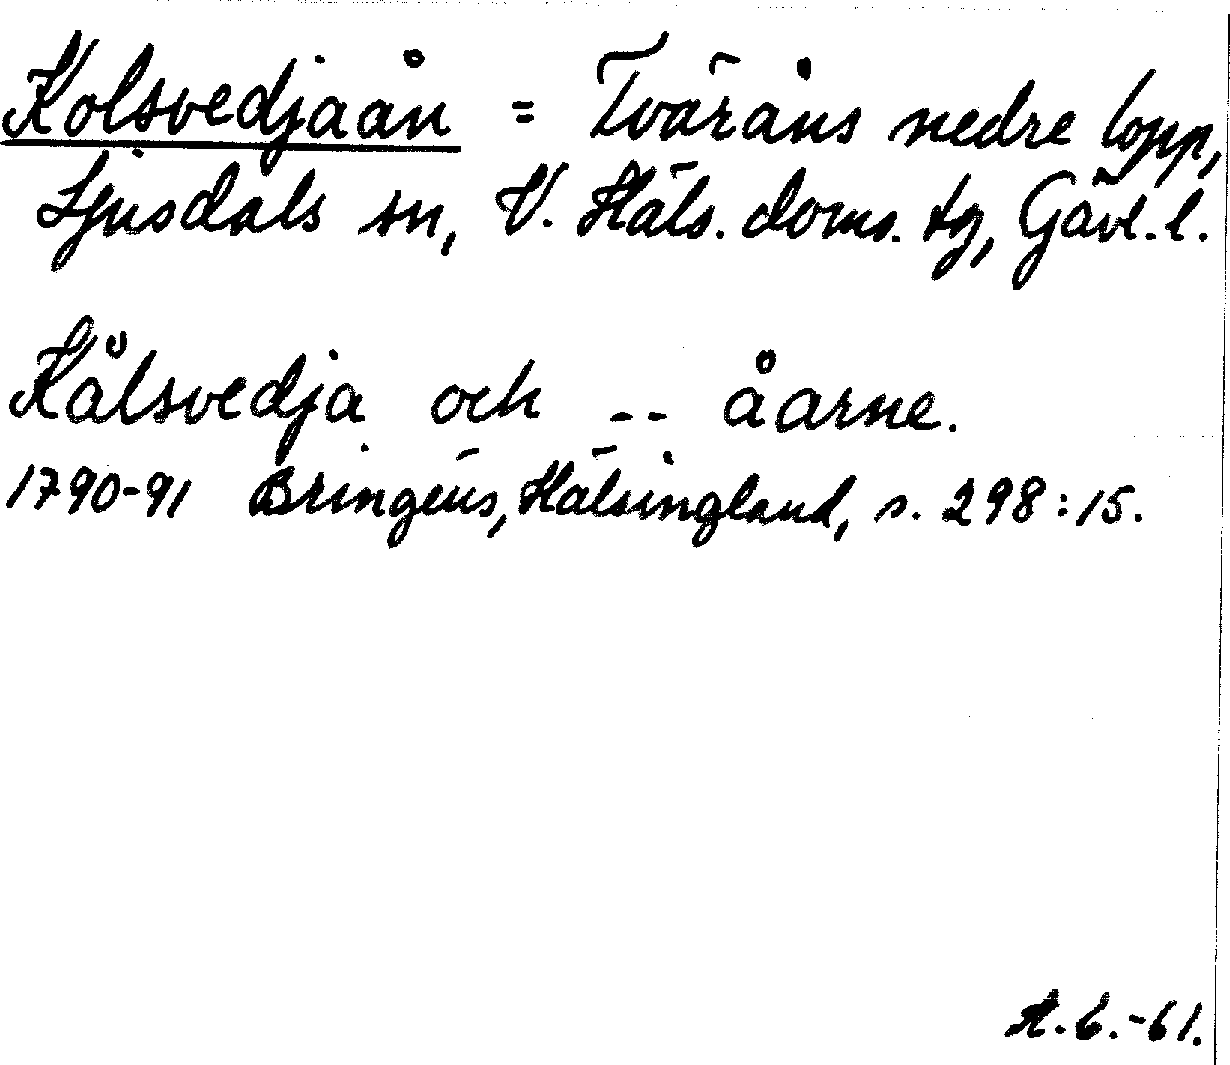 Kolsvedjaån = Tväråns nedre lopp,
Ljusdals sn, V. Häls. doms. tg, Gävl. l.
Kålsvedja och -- åarne.
1790-91 Bringéus, Hälsingland, s. 298:15.
A.C.-61.